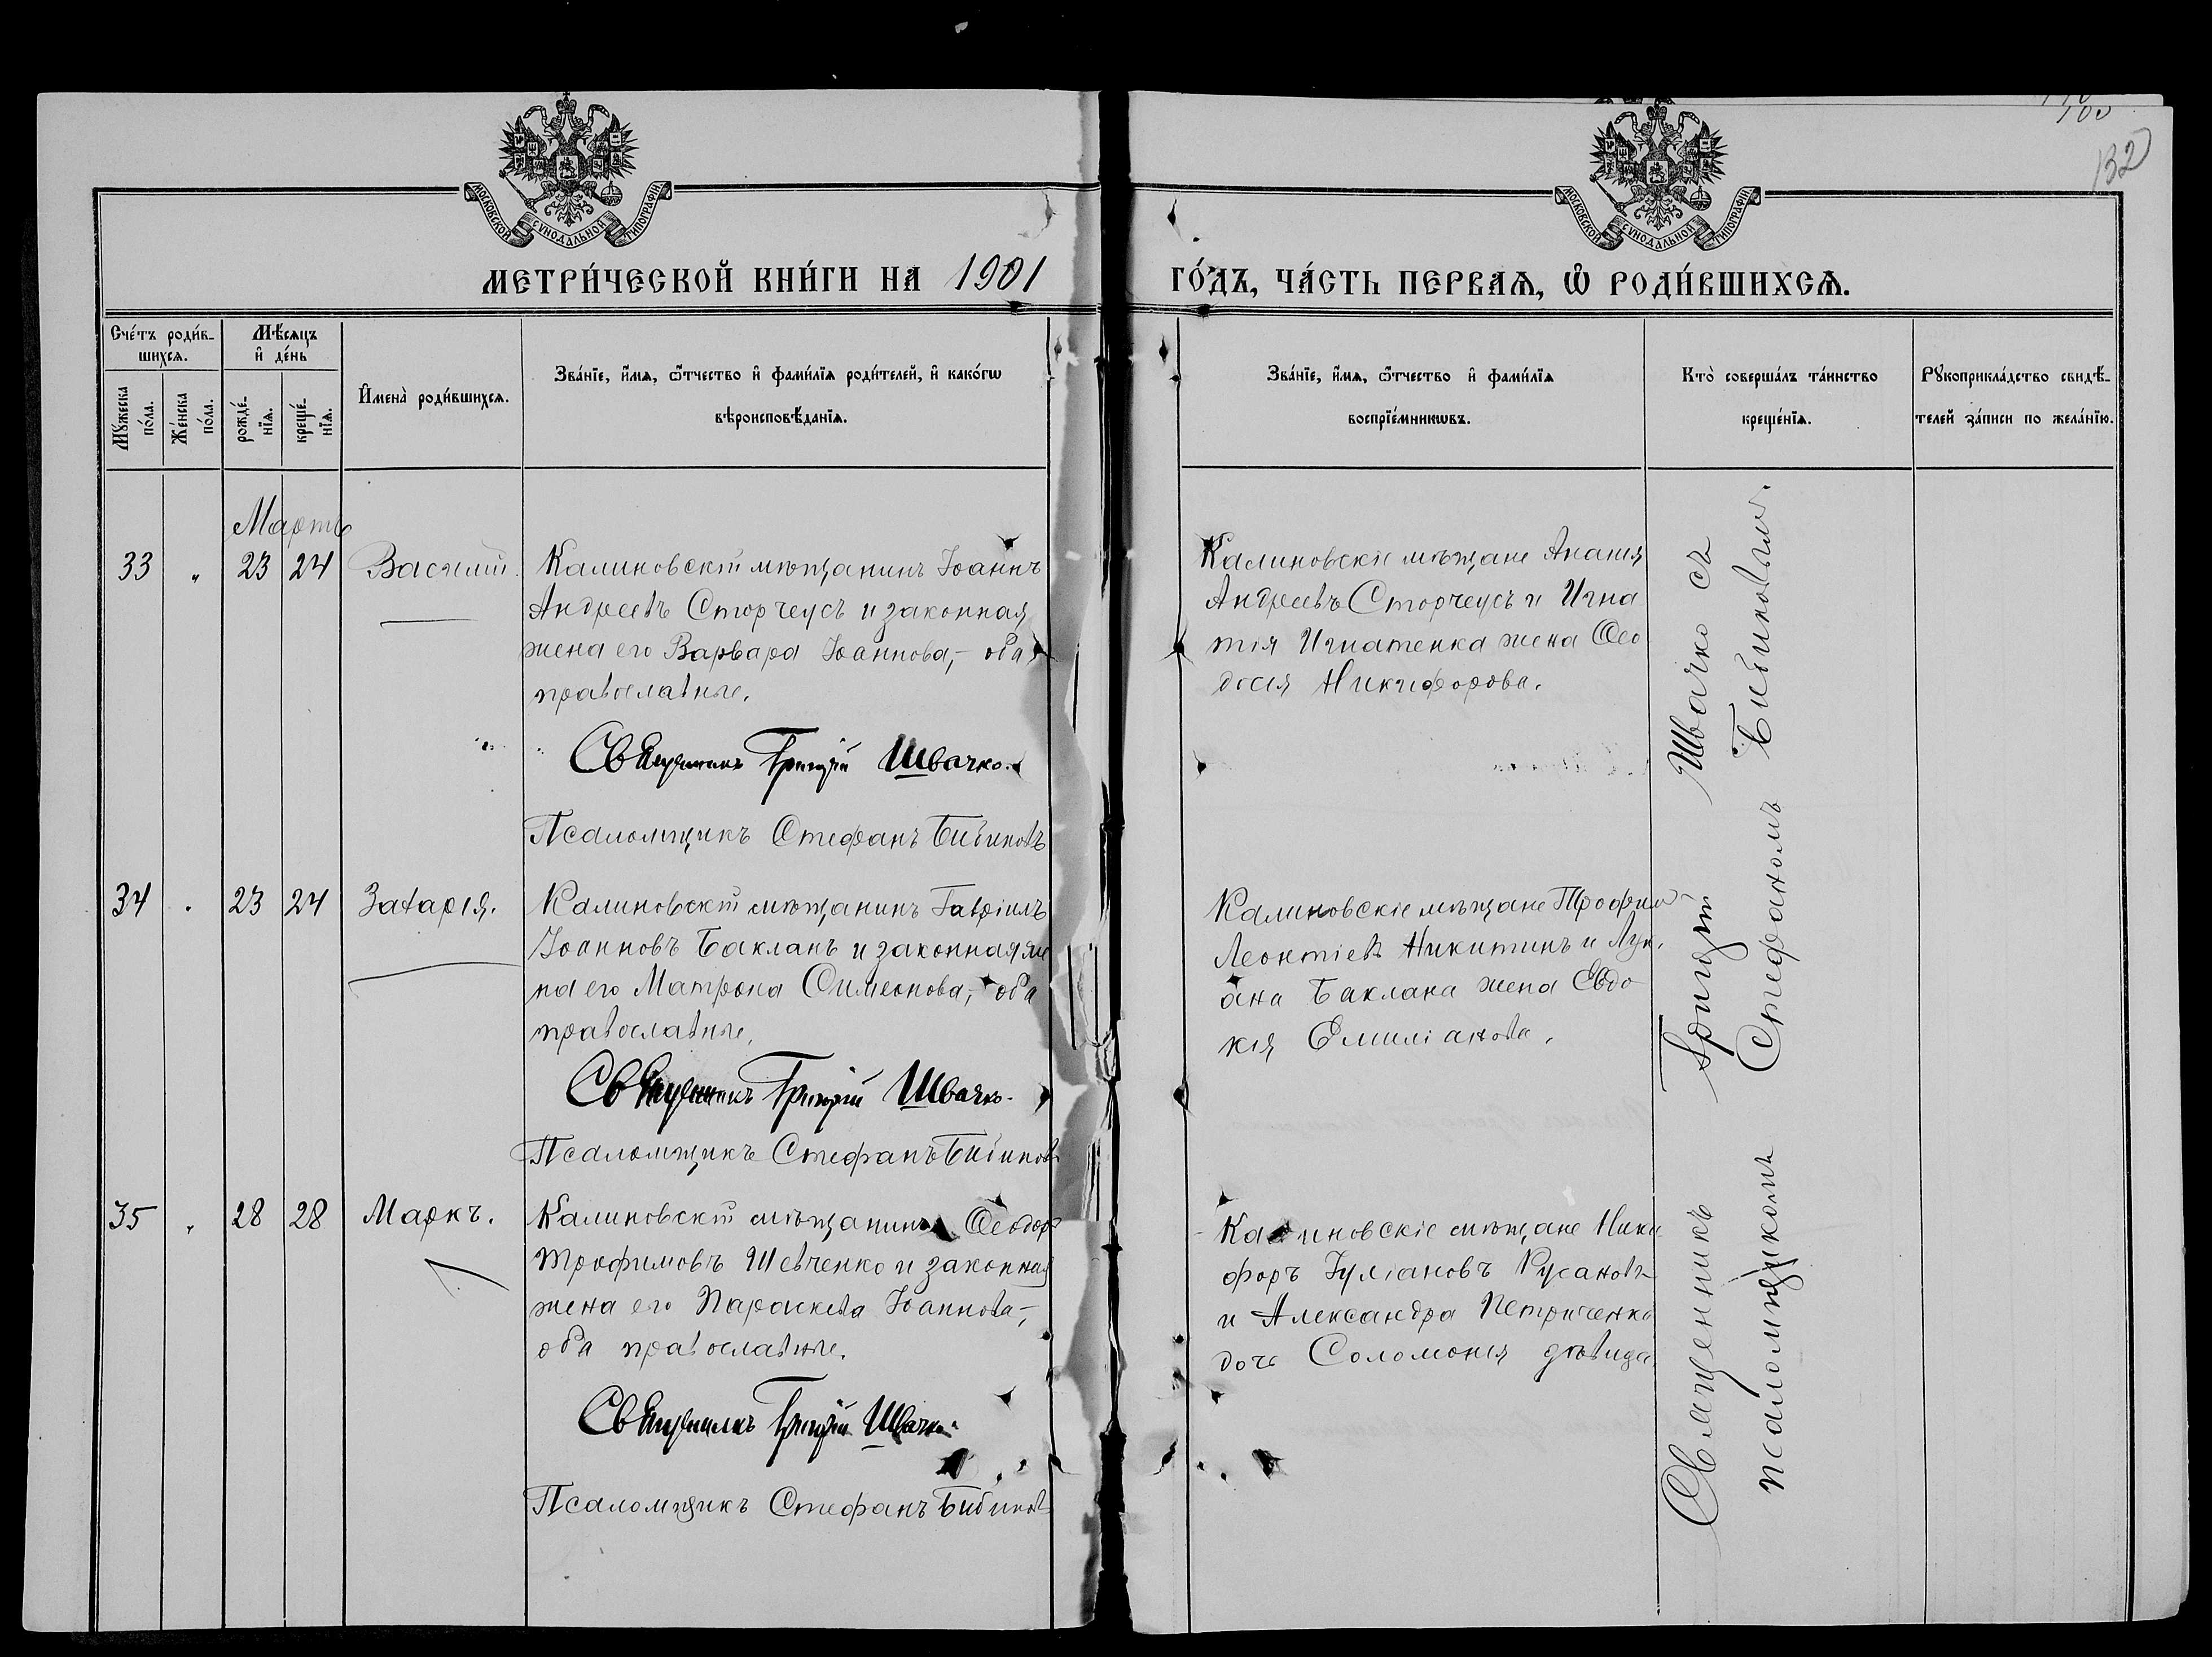 100
132
МОСКОВСКОЙ СѴНОДАЛЬНОЙ ТИПОГРАФІИ
МОСКОВСКОЙ СѴНОДАЛЬНОЙ ТИПОГРАФІИ
МЕТРИ́ЧЕСКОЙ КНИ́ГИ НА 1901 ГО́ДЪ, ЧА́СТЬ ПЕРВАѦ, Ѿ РОДИ́ВШИХСѦ.
Сче́тъ роди́в-
шихсѧ.
Мꙋ́жеска по́ла.
Же́нска по́ла.
Мѣ́сѧцъ
и҆ де́нь
рожде́-
нїѧ.
креще́-
нїѧ.
И҆мена̀ роди́вшихсѧ.
Зва́нїе, и҆́мѧ, ѻ҆́тчество и҆ фами́лїѧ роди́телей, и҆ како́гѡ
вѣроисповѣ́данїѧ.
Зва́нїе, и҆́мѧ, ѻ҆́тчество и҆ фами́лїѧ
воспрїе́мникѡвъ.
Кто̀ соверша́лъ та́инство
креще́нїѧ.
Рꙋкоприкла́дство свидѣ́-
телей за́писи по жела́нїю.
Мартъ
33 „ 23 24 Василій.
Калиновскій мѣщанинъ Іоаннъ
Андреевъ Сторчеусъ и законная
жена его Варвара Іоаннова,- оба
православные.
Священникъ Григорій Швачко.
Псаломщикъ Стефанъ Бибиковъ
Калиновскіе мѣщане Ананія
Андреевъ Сторчеусъ и Игна
тія Игнатенка жена Ѳео
досія Никифорова.
34 „ 23 24 Захарія.
Калиновскій мѣщанинъ Гавріилъ
Іоанновъ Бакланъ и законная же
на его Матрона Симеонова,- оба
православные.
Священникъ Григорій Швачко.
Псаломщикъ Стефанъ Бибиковъ
Калиновскіе мѣщане Трофим
Леонтіевъ Никитинъ и Лук.
ана Баклана жена Евдо
кія Емиліанова.
35 „ 28 28 Маркъ.
Калиновскій мѣщанинъ Ѳеодоръ
Трофимовъ Шевченко и законная
жена его Параскева Іоаннова-,
оба православные.
Священникъ Григорій Швачко.
Псаломщикъ Стефанъ Бибиковъ
Калиновскіе мѣщане Ники
форъ Іуліановъ Русановъ
и Александра Петриченка
дочь Соломонія дѣвица.
Священникъ Григорій Швачко съ
псаломщикомъ Стефаномъ Бибиковымъ.